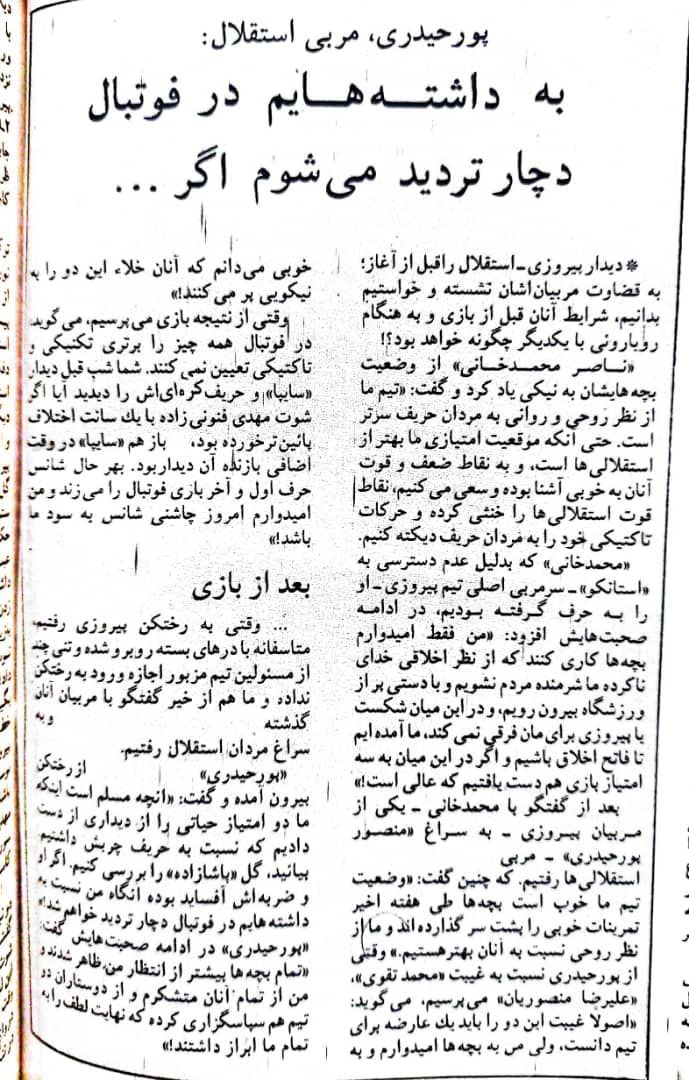 پورحیدری، مربی استقلال:
به داشته‌هایم در فوتبال
دچار تردید می‌شوم اگر ...
* دیدار پیروزی ـ استقلال را قبل از آغاز؛
به قضاوت مربیان‌اشان نشسته و خواستیم
بدانیم، شرایط آنان قبل از بازی و به هنگام
رویارونی با یکدیگر چگونه خواهد بود؟!
«ناصر محمدخانی» از وضعیت
بچه‌هایشان به نیکی یاد کرد و گفت: «تیم ما
از نظر روحی و روانی به مردان حریف سرتر
است. حتی آنکه موقعیت امتیازی ما بهتر از
استقلالی‌ها است، و به نقاط ضعف و قوت
آنان به خوبی آشنا بوده و سعی می‌کنیم، نقاط
قوت استقلالی‌ها را خنثی کرده و حرکات
تاکتیکی خود را به مردان حریف دیکته کنیم.
«محمدخانی» که بدلیل عدم دسترسی به
«استانکو» ـ سرمربی اصلی تیم پیروزی ـ او
را به حرف گرفته بودیم، در ادامه
صحبت‌هایش افزود: «من فقط امیدوارم
بچه‌ها کاری کنند که از نظر اخلاقی خدای
ناکرده ما شرمنده مردم نشویم و با دستی پر از
ورزشگاه بیرون رویم، و در این میان شکست
یا پیروزی برای‌مان فرقی نمی‌کند، ما آمده‌ایم
تا فاتح اخلاق باشیم و اگر در این میان به سه
امتیاز بازی هم دست یافتیم که عالی است!»
بعد از گفتگو با محمدخانی ـ یکی از
مربیان پیروزی ـ به سراغ «منصور
پورحیدری» ـ مربی
استقلالی‌ها رفتیم. که چنین گفت: «وضعیت
تیم ما خوب است بچه‌ها طی هفته اخیر
تمرینات خوبی را پشت سر گذارده‌اند و ما از
نظر روحی نسبت به آنان بهتر هستیم.» وقتی
از پورحیدری نسبت به غیبت «محمد تقوی»،
«علیرضا منصوریان» می‌پرسیم، می‌گوید:
«اصولا غیبت این دو را باید یك عارضه برای
تیم دانست، ولی من به بچه‌ها امیدوارم و به
خوبی می‌دانم که آنان خلاء این دو را به
نیکویی پر می‌کنند!»
وقتی از نتیجه بازی می‌پرسیم، می‌گوید:
در فوتبال همه چیز را برتری تکنیکی و
تاکتیکی تعیین نمی‌کنند. شما شب قبل دیدار
«سایپا» و حریف کره‌ای‌اش را دیدید آیا اگر
شوت مهدی فنونی‌زاده با یك سانت اختلاف
پائین‌تر خورده بود، باز هم «سایپا» در وقت
اضافی بازنده آن دیدار بود. بهر حال شانس
حرف اول و آخر بازی فوتبال را می‌زند و من
امیدوارم امروز چاشنی شانس به سود ما
باشد!»
بعد از بازی
... وقتی به رختکن پیروزی رفتیم،
متاسفانه با درهای بسته روبرو شده و تنی چند
از مسئولین تیم مزبور اجازه ورود به رختکن
نداده و ما هم از خیر گفتگو با مربیان آنان
گذشته و به
سراغ مردان استقلال رفتیم.
«پورحیدری» از رختکن
بیرون آمده و گفت: «آنچه مسلم است اینکه
ما دو امتیاز حیاتی را از دیداری از دست
دادیم که نسبت به حریف چربش داشتیم.
بیائید، گل «پاشازاده» را بررسی کنیم. اگر او
و ضربه‌اش آفساید بوده آنگاه من نسبت به
داشته‌هایم در فوتبال دچار تردید خواهم شد!»
«پورحیدری» در ادامه صحبت‌هایش گفت:
«تمام بچه‌ها بیشتر از انتظار من، ظاهر شدند و
من از تمام آنان متشکرم و از دوستاران دو
تیم هم سپاسگزاری کرده که نهایت لطف را به
تمام ما ابراز داشتند!»